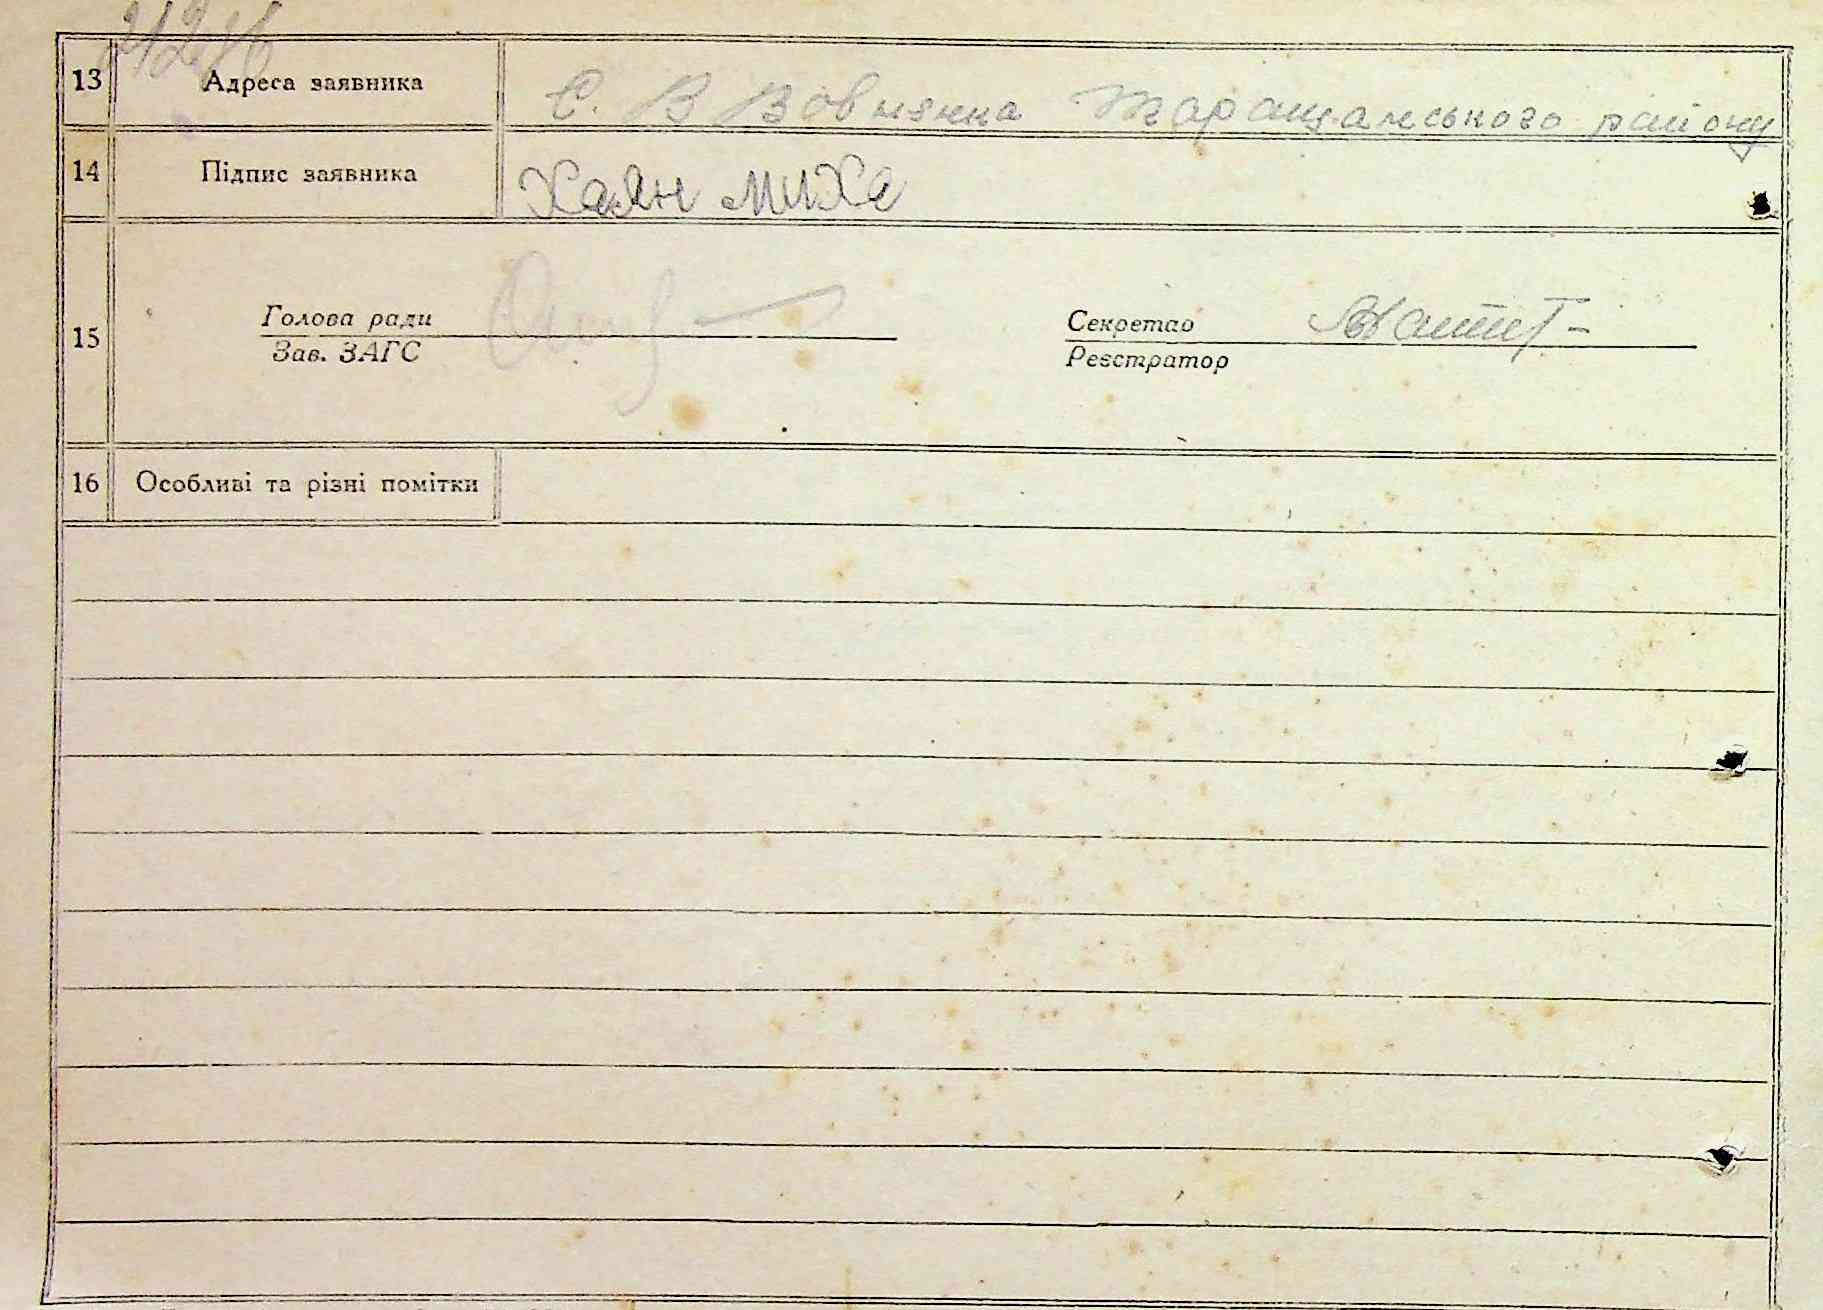 13 Адреса заявника С. В Вовнянка Таращанського району
14 Підпис заявника Хаян Миха
15 Голова ради
Зав. ЗАГС
Секретар
Реєстратор
16 Особливі та різні помітки